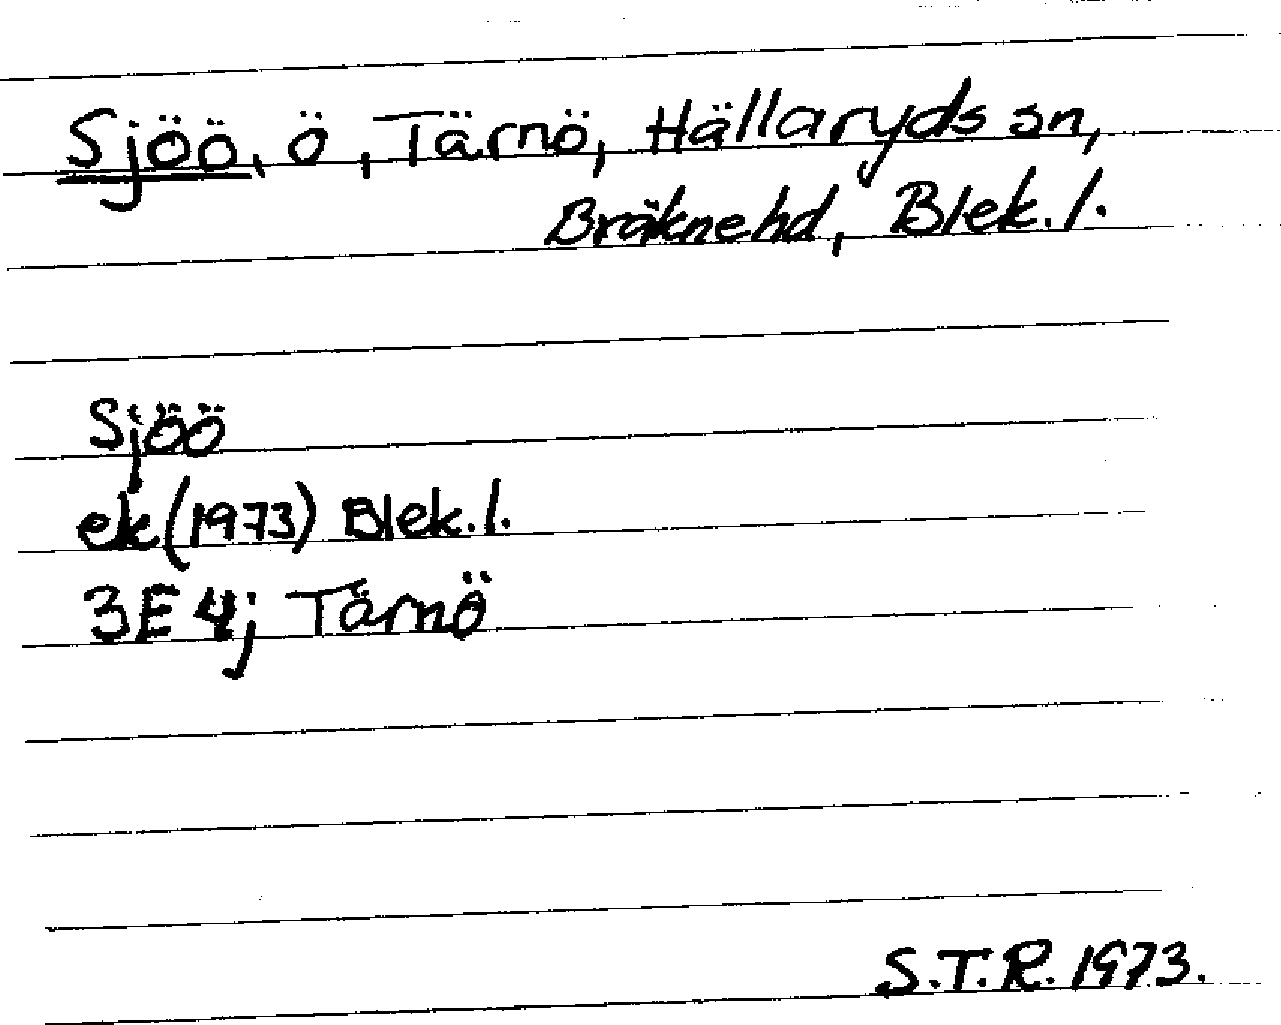 Sjöö, ö, Tärnö, Hällaryds sn,
Bräknehd, Blek. l.
Sjöö
ek (1973) Blek. l.
3E 4j Tärnö
S.T.R. 1973.